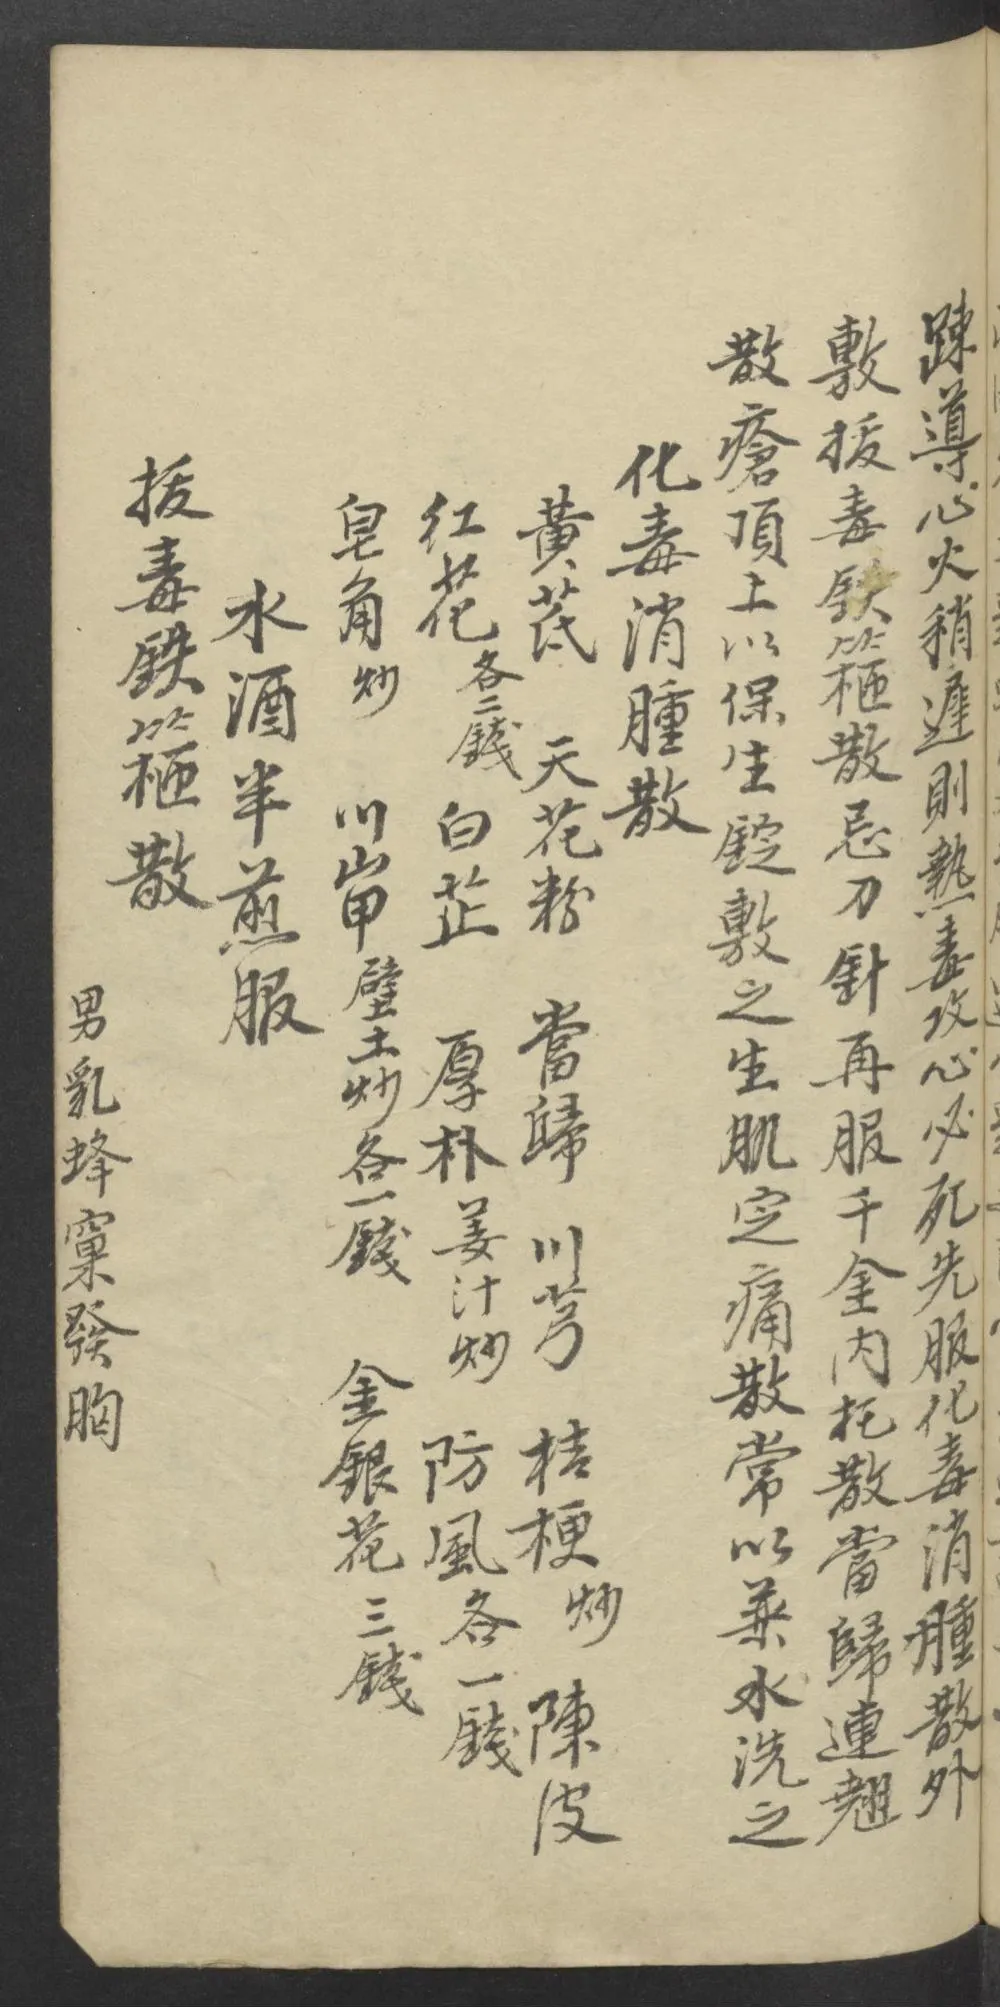 疎導心火稍遲則熱毒攻心必死先服化毒消腫散外
敷拔毒鉄箍散忌刀針再服千金內托散當歸連翹
散瘡頂上以保生錠敷之生肌定痛散常以藥水洗之
化毒消腫散
黃芪 天花粉 當歸 川芎 桔梗炒 陳皮
紅花各二錢 白芷 厚朴姜汁炒 防風各一錢
皂角炒 川山甲壁土炒各一錢 金銀花三錢
水酒半煎服
拔毒鉄箍散
男乳蜂窠發胸